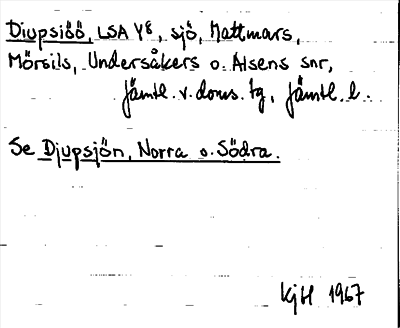 Djupsjöö, LSA Y8, sjö, Mattmars,
Mörsils, Undersåkers o. Alsens snr,
Jämtl. v. doms. tg, Jämtl. l.
Se Djupsjön, Norra o. Södra.
KjH 1967